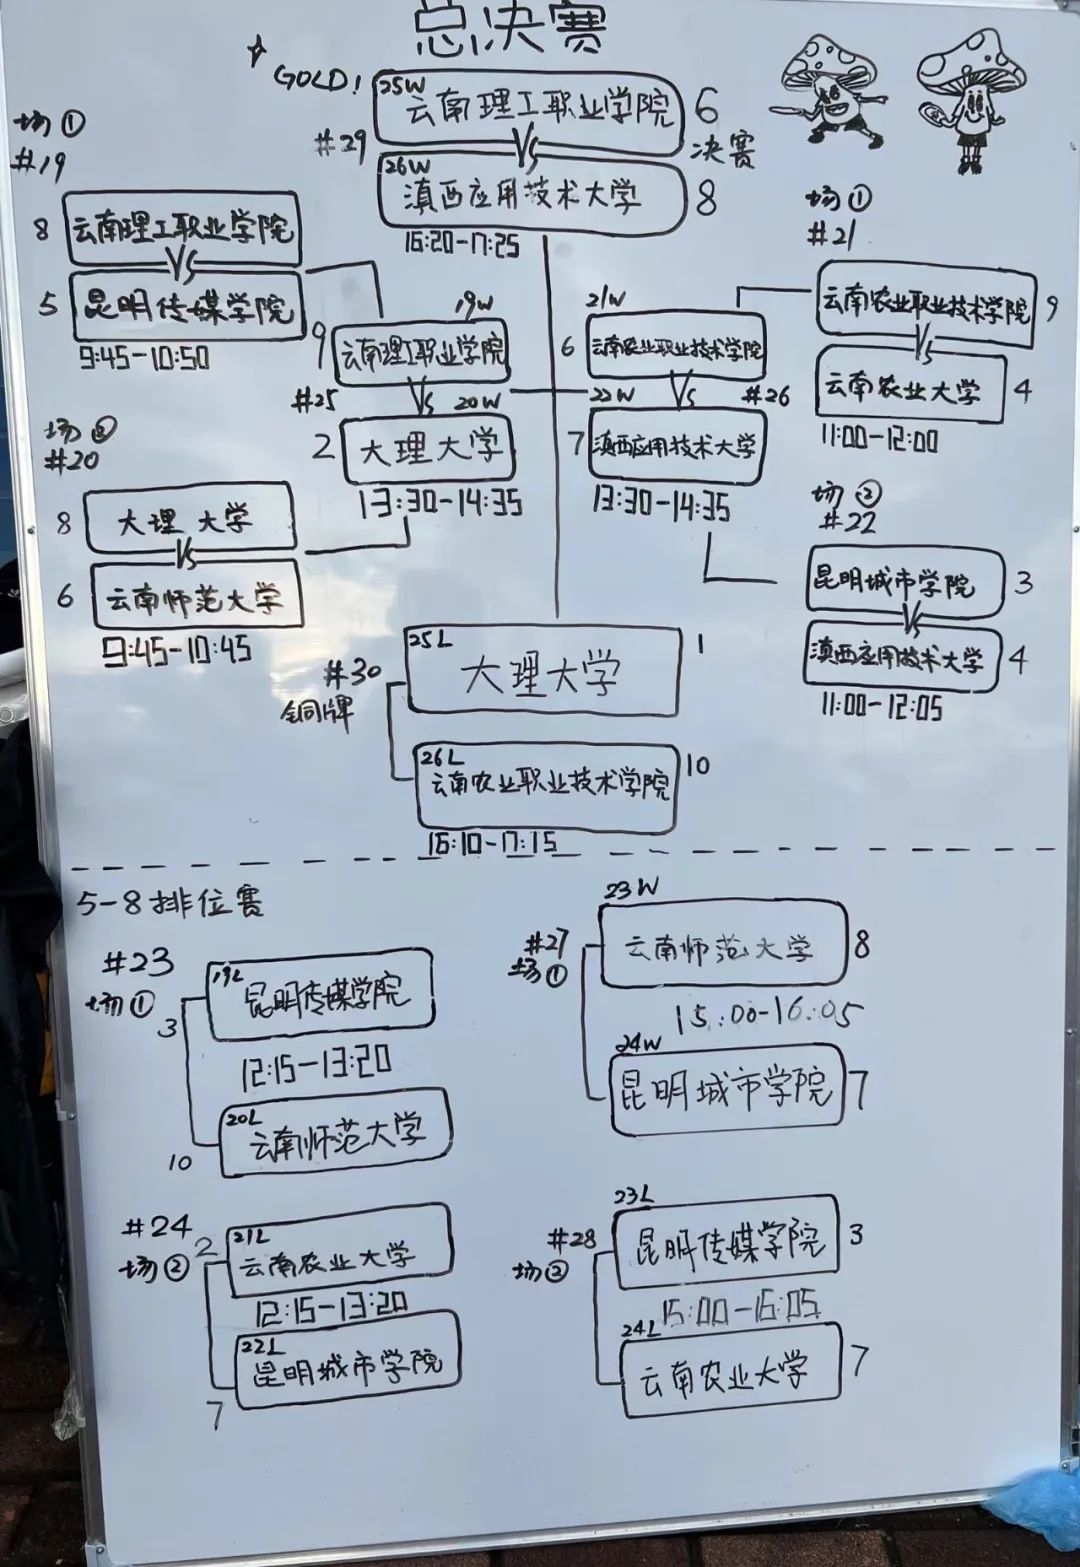 总决赛
GOLD!
#29
25W
云南理工职业学院
6
VS
决赛
26W
滇西应用技术大学
8
16:20-17:25
场①
#19
8
云南理工职业学院
VS
5
昆明传媒学院
9:45-10:50
场②
#20
8
大理大学
VS
6
云南师范大学
9:45-10:45
19W
9
云南理工职业学院
#25
VS
20W
2
大理大学
13:30-14:35
21W
6
云南农业职业技术学院
22W
VS
#26
7
滇西应用技术大学
13:30-14:35
场①
#21
云南农业职业技术学院
9
VS
云南农业大学
4
11:00-12:00
场②
#22
昆明城市学院
3
VS
滇西应用技术大学
4
11:00-12:05
#30
铜牌
25L
大理大学
1
26L
云南农业职业技术学院
10
16:10-17:15
5-8排位赛
#23
场①
3
19L
昆明传媒学院
12:15-13:20
20L
云南师范大学
10
#24
场②
2
21L
云南农业大学
12:15-13:20
22L
昆明城市学院
7
23W
#27
场①
云南师范大学
8
15:00-16:05
24W
昆明城市学院
7
23L
#28
场②
昆明传媒学院
3
15:00-16:05
24L
云南农业大学
7